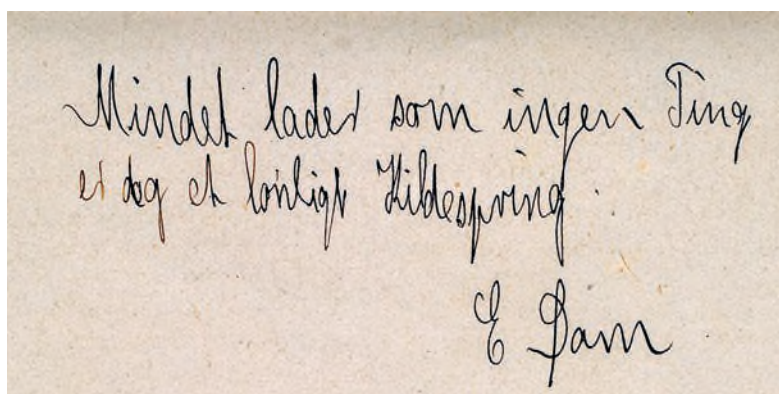 Mindet lader som ingen Ting
er dog et lønligt Kildespring.
E Dam